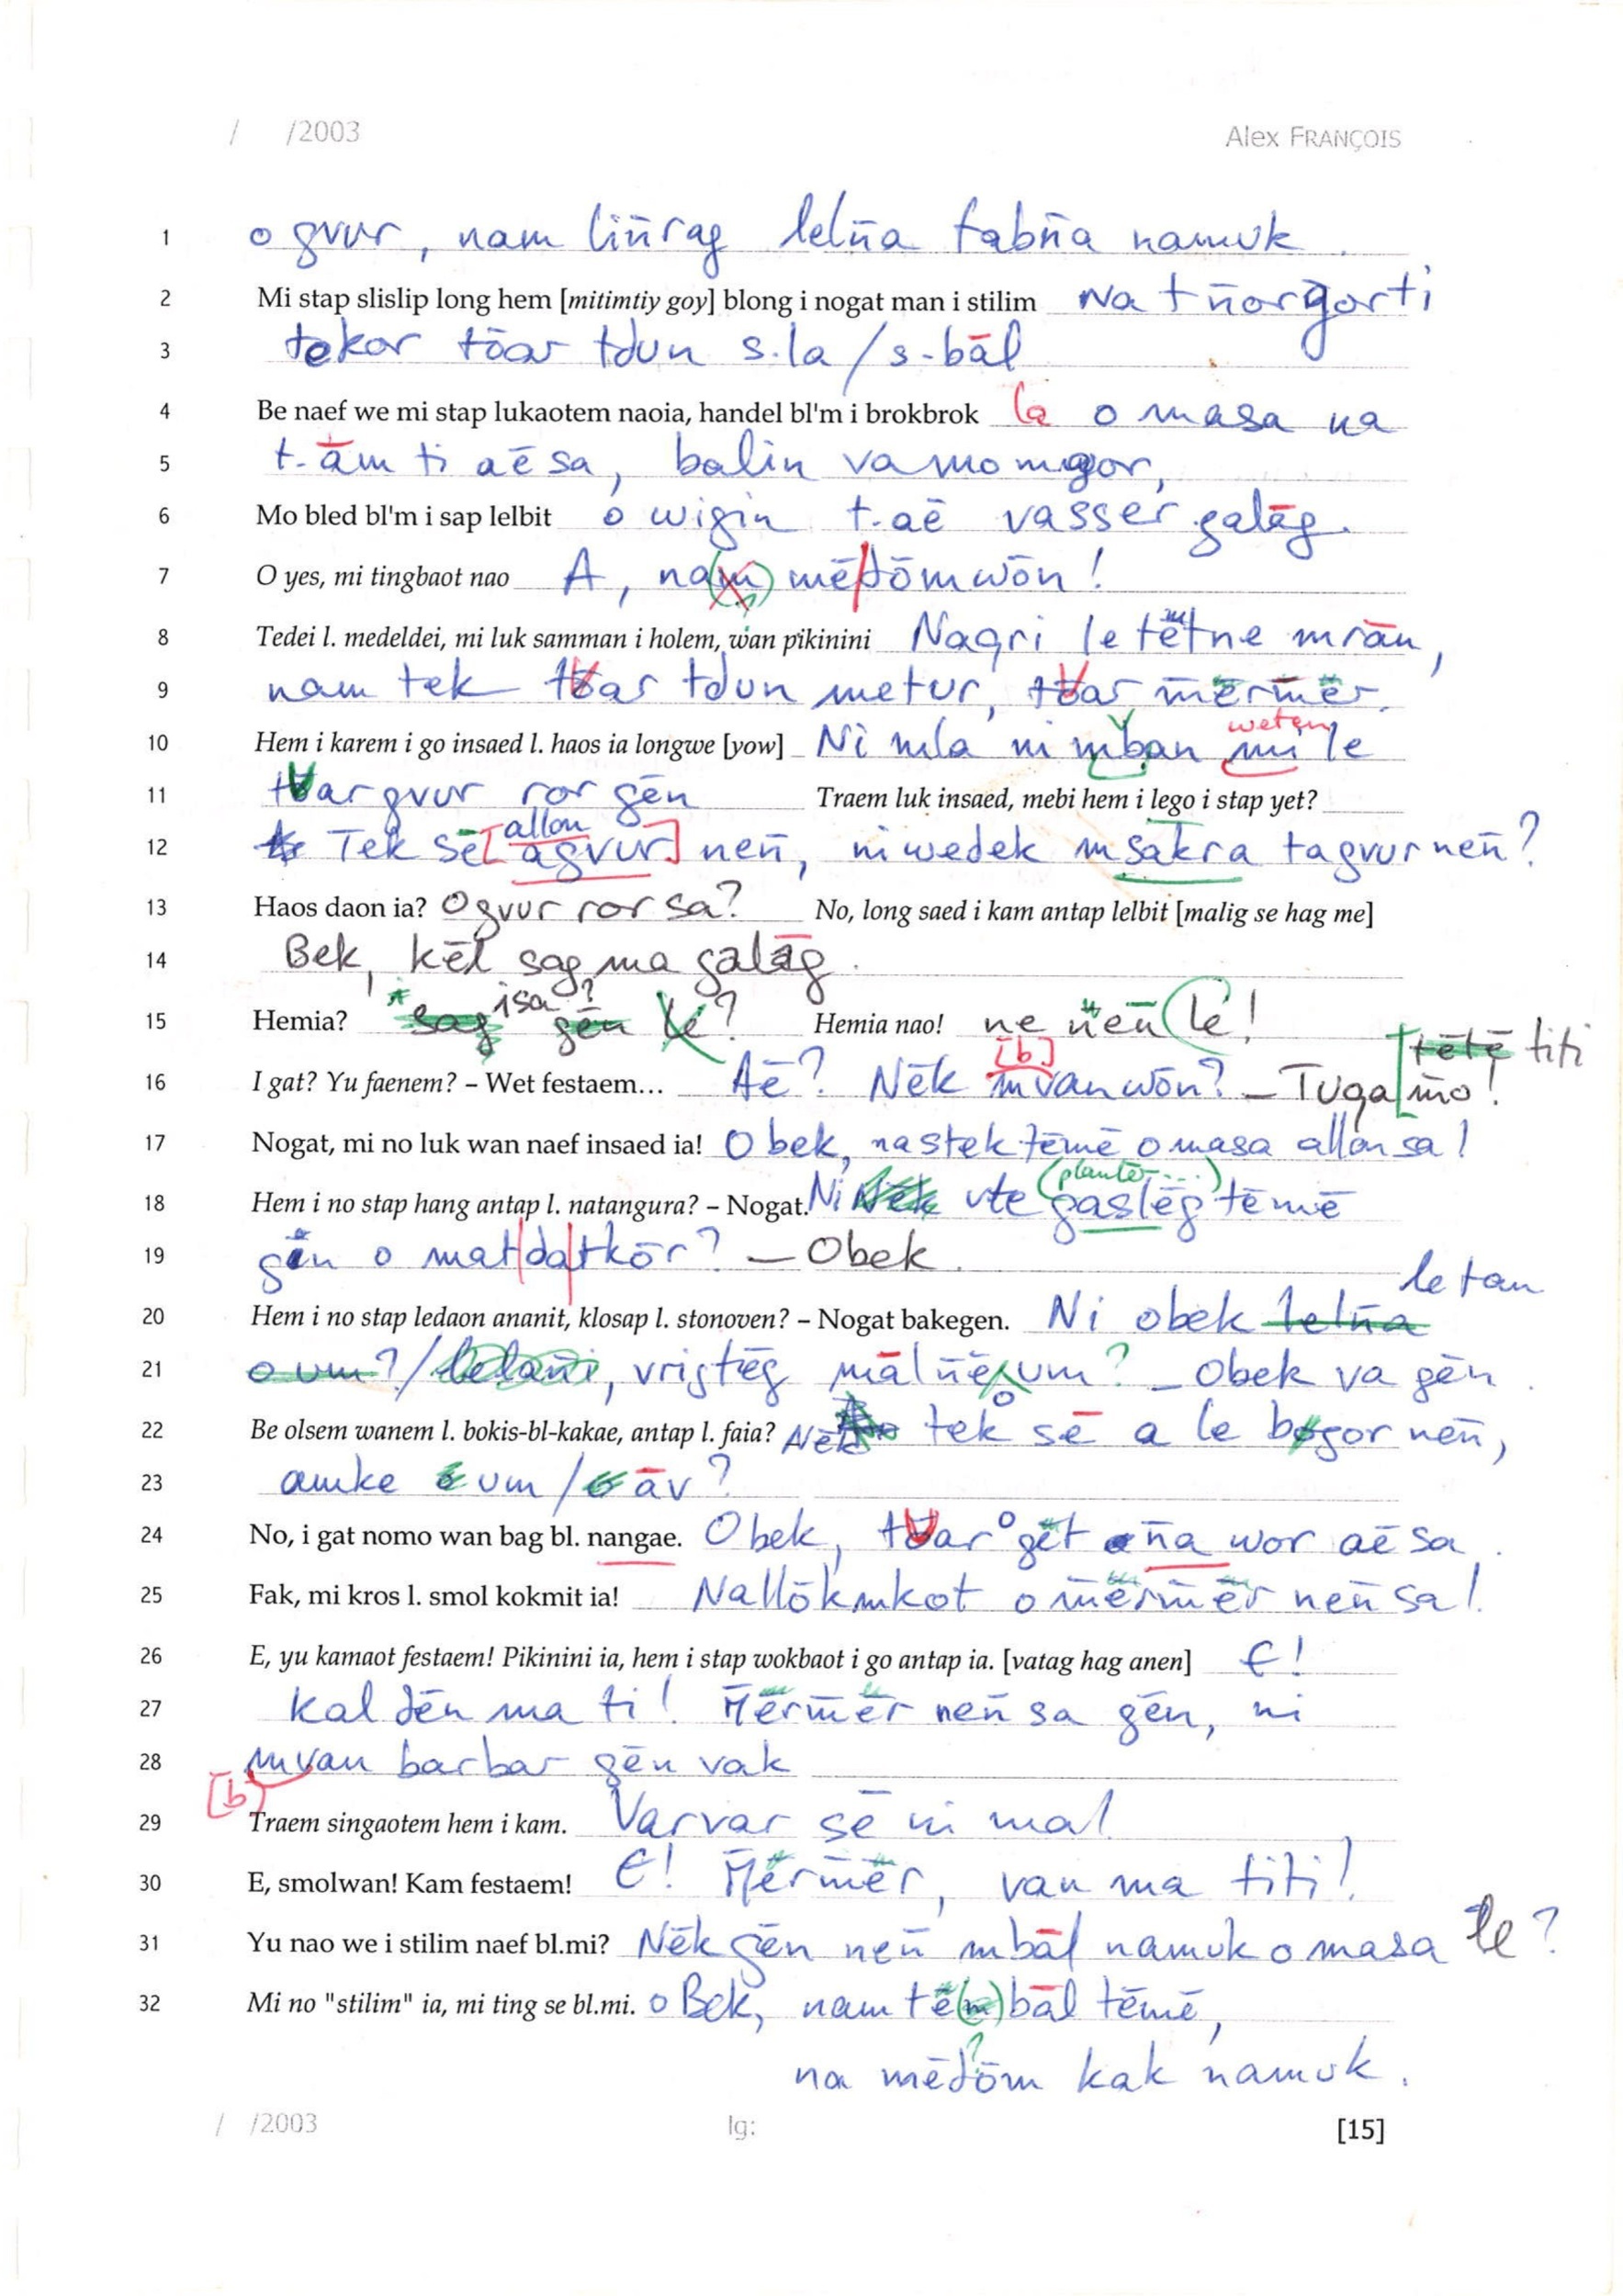 / /2003 Alex FRANÇOIS
1 o gvur, nam lin̄rag leln̄a tabn̄a namuk.
2 Mi stap slislip long hem [mitimtiy goy] blong i nogat man i stilim Na t n̄orgorti
3 tekor tōar tdun s.la / s-bāl
4 Be naef we mi stap lukaotem naoia, handel bl'm i brokbrok la o masa na
5 t-ām ti aē sa, balin va mo mgor,
6 Mo bled bl'm i sap lelbit o wigin t.aē vasser galēg.
7 O yes, mi tingbaot nao A, na mēdōmwōn!
8 Tedei l. medeldei, mi luk samman i holem, wan pikinini Naqri le tētne mrān,
9 nam tek tar tdun metur, tar m̄ērm̄ēr.
10 Hem i karem i go insaed l. haos ia longwe [yow] Ni mla ni mban weten mi le
11 tar gvur ror gēn Traem luk insaed, mebi hem i lego i stap yet?
12 Tek sē [agvur] allon nen̄, ni wedek msakra tagvur nen̄?
13 Haos daon ia? O gvur ror sa? No, long saed i kam antap lelbit [malig se hag me]
14 Bek, kēl sag ma galāg.
15 Hemia? isa? Hemia nao! ne n̄en̄ (lē!
16 I gat? Yu faenem? – Wet festaem... Aē? Nēk mvan [b] wōn? – Tuga m̄o! titi
17 Nogat, mi no luk wan naef insaed ia! Obek, na stek tēmē o masa allon sa!
18 Hem i no stap hang antap l. natangura? – Nogat. Ni vte (planter...) gaslēg tēmē
19 gēn o mat|da|tkōr? – Obek.
20 Hem i no stap ledaon ananit, klosap l. stonoven? – Nogat bakegen. Ni obek leln̄a le tan
21 o um? / , vristēg māln̄ē o um? – Obek va gēn.
22 Be olsem wanem l. bokis-bl-kakae, antap l. faia? Nēk tek sē a le bgor nen̄,
23 amke um / āv?
24 No, i gat nomo wan bag bl. nangae. Obek, tar o gēt n̄a wor aē sa.
25 Fak, mi kros l. smol kokmit ia! Nallōkmkot o m̄ērm̄ēr nen̄ sa!
26 E, yu kamaot festaem! Pikinini ia, hem i stap wokbaot i go antap ia. [vatag hag anen] E!
27 Kal dēn ma ti! M̄ērm̄ēr nen̄ sa gēn, ni
28 mvan barbar gēn vak [b]
29 Traem singaotem hem i kam. Varvar sē ni mal
30 E, smolwan! Kam festaem! E! M̄ērm̄ēr, van ma titi!
31 Yu nao we i stilim naef bl.mi? Nēk gēn nen̄ mbāl namuk o masa le?
32 Mi no "stilim" ia, mi ting se bl.mi. o Bek, nam tē(m)bāl tēmē,
na mēdōm kak namuk.
/ /2003 lg: [15]